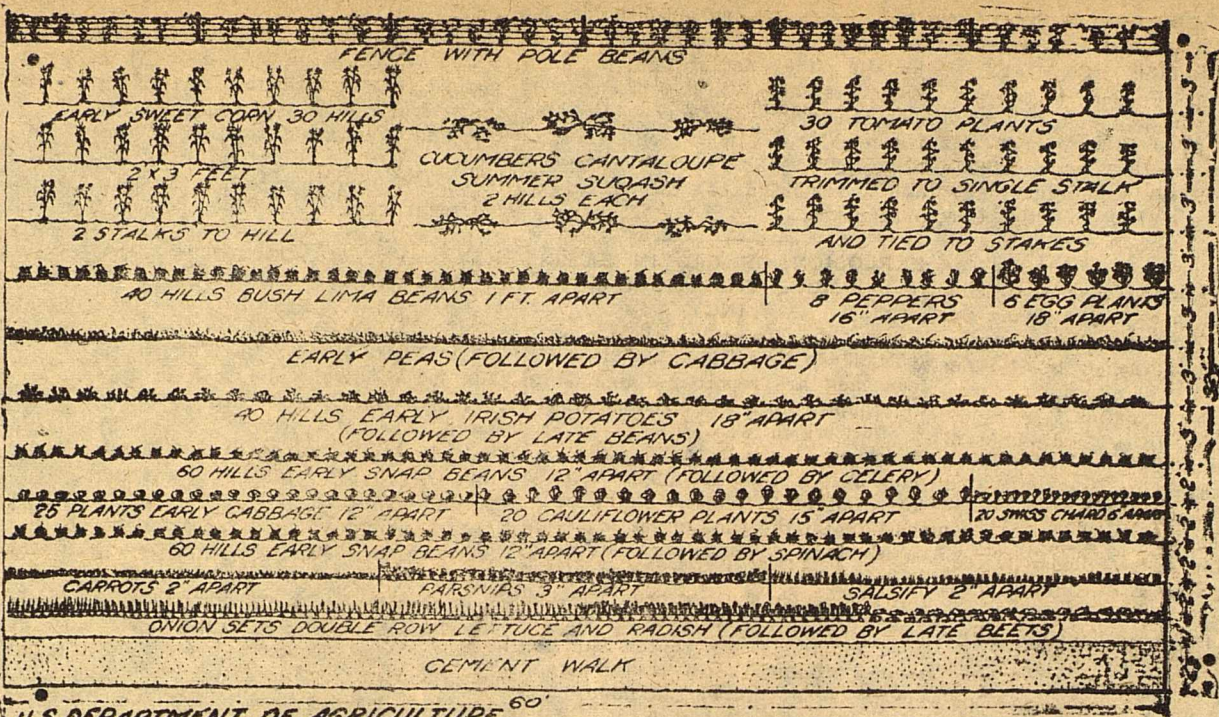 FENCE WITH POLE BEANS
EARLY SWEET CORN 30 HILLS
2 X 3 FEET
2 STALKS TO HILL
CUCUMBERS CANTALOUPE
SUMMER SUQASH
2 HILLS EACH
30 TOMATO PLANTS
TRIMMED TO SINGLE STALK
AND TIED TO STAKES
40 HILLS BUSH LIMA BEANS 1 FT. APART
8 PEPPERS
16" APART
6 EGG PLANTS
18" APART
EARLY PEAS (FOLLOWED BY CABBAGE)
40 HILLS EARLY IRISH POTATOES 18" APART
(FOLLOWED BY LATE BEANS)
60 HILLS EARLY SNAP BEANS 12" APART (FOLLOWED BY CELERY)
25 PLANTS EARLY CABBAGE 12" APART
20 CAULIFLOWER PLANTS 15" APART
20 SWISS CHARD 6" APART
60 HILLS EARLY SNAP BEANS 12" APART (FOLLOWED BY SPINACH)
CARROTS 2" APART
PARSNIPS 3" APART
SALSIFY 2" APART
ONION SETS DOUBLE ROW LETTUCE AND RADISH (FOLLOWED BY LATE BEETS)
CEMENT WALK
60'
U.S. DEPARTMENT OF AGRICULTURE